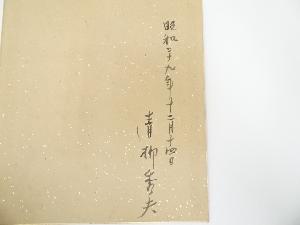 昭和三十九年十二月十四日
清柳秀夫